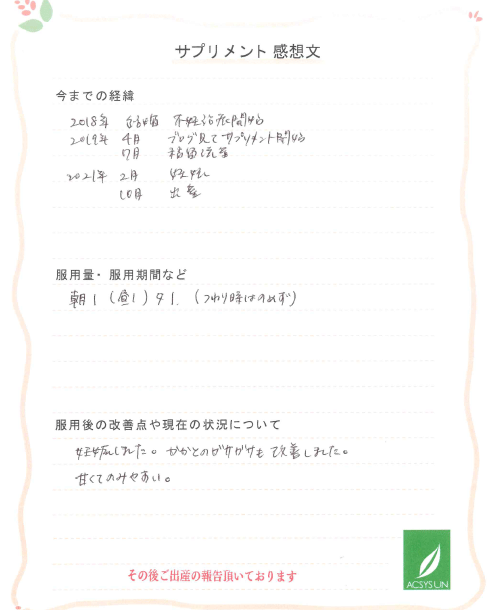 サプリメント 感想文
今までの経緯
2018年 不妊治療開始
2019年 4月 ブログ見てサプリメント開始
7月 稽留流産
2021年 2月 妊娠
10月 出産
服用量・服用期間など
朝1 (昼1) 夕1. (つわり時はのめず)
服用後の改善点や現在の状況について
妊娠しました。かかとのガサガサも改善しました。
甘くてのみやすい。
その後ご出産の報告頂いております
ACSYS LIN